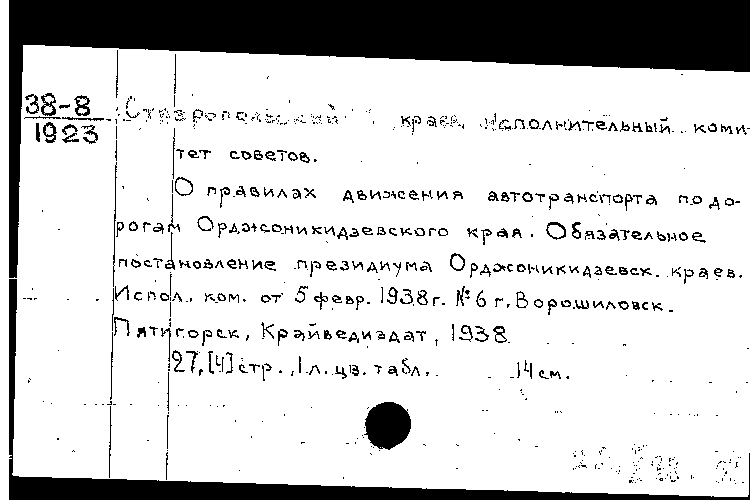 38-8
1923
Ставропольский краев. исполнительный коми-
тет советов.
О правилах движения автотранспорта по до-
рогам Орджоникидзевского края. Обязательное
постановление президиума Орджоникидзевск. краев.
Испол. ком. от 5 февр. 1938 г. № 6 г. Ворошиловск.
Пятигорск, Крайведиздат, 1938
27, [4] стр., 1 л. цв. табл. 14 см.